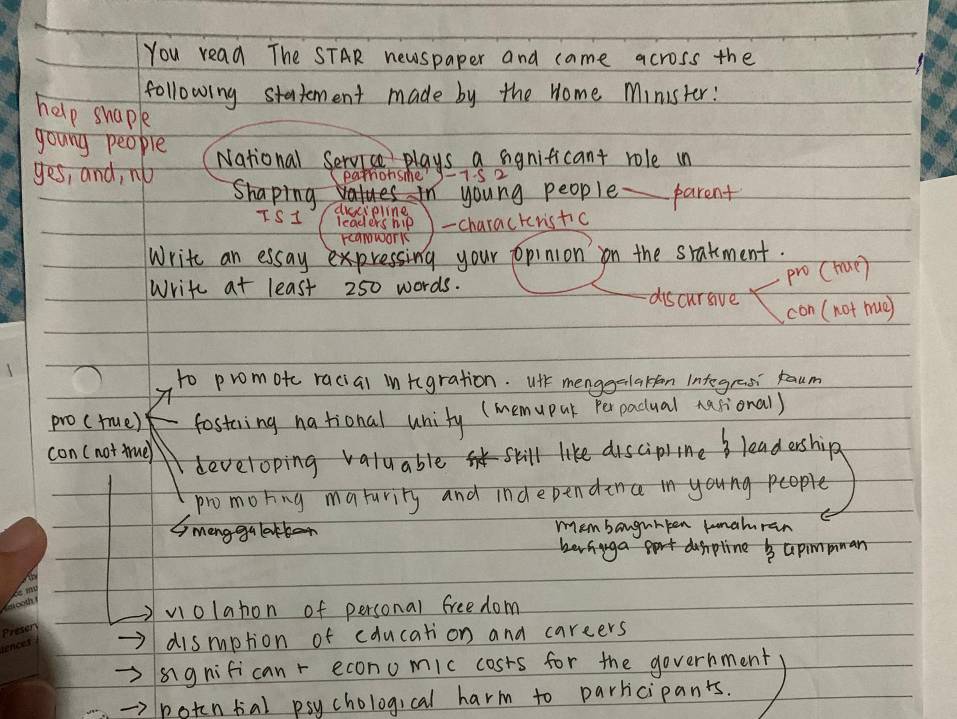 You read The STAR newspaper and came across the
following statement made by the Home Minister:
help shape
young people
yes, and, no
National Service plays a significant role in
patriotisme - TS 2
Shaping values in young people - parent
TS 1
discipline
leadership
teamwork
- characteristic
Write an essay expressing your opinion on the statement.
Write at least 250 words.
discursive
pro (true)
con (not true)
to promote racial integration. utk menggalakkan Integrasi kaum
pro (true)
fostering national unity (memupuk perpaduan nasional)
con (not true)
developing valuable skill like discipline & leadership
promoting maturity and independence in young people
↳ menggalakkan
membangunkan kemahiran
berharga sprt disipline & kpimpinan
→ violation of personal freedom
→ disruption of education and careers
→ significant economic costs for the government
→ potential psychological harm to participants.
Preser